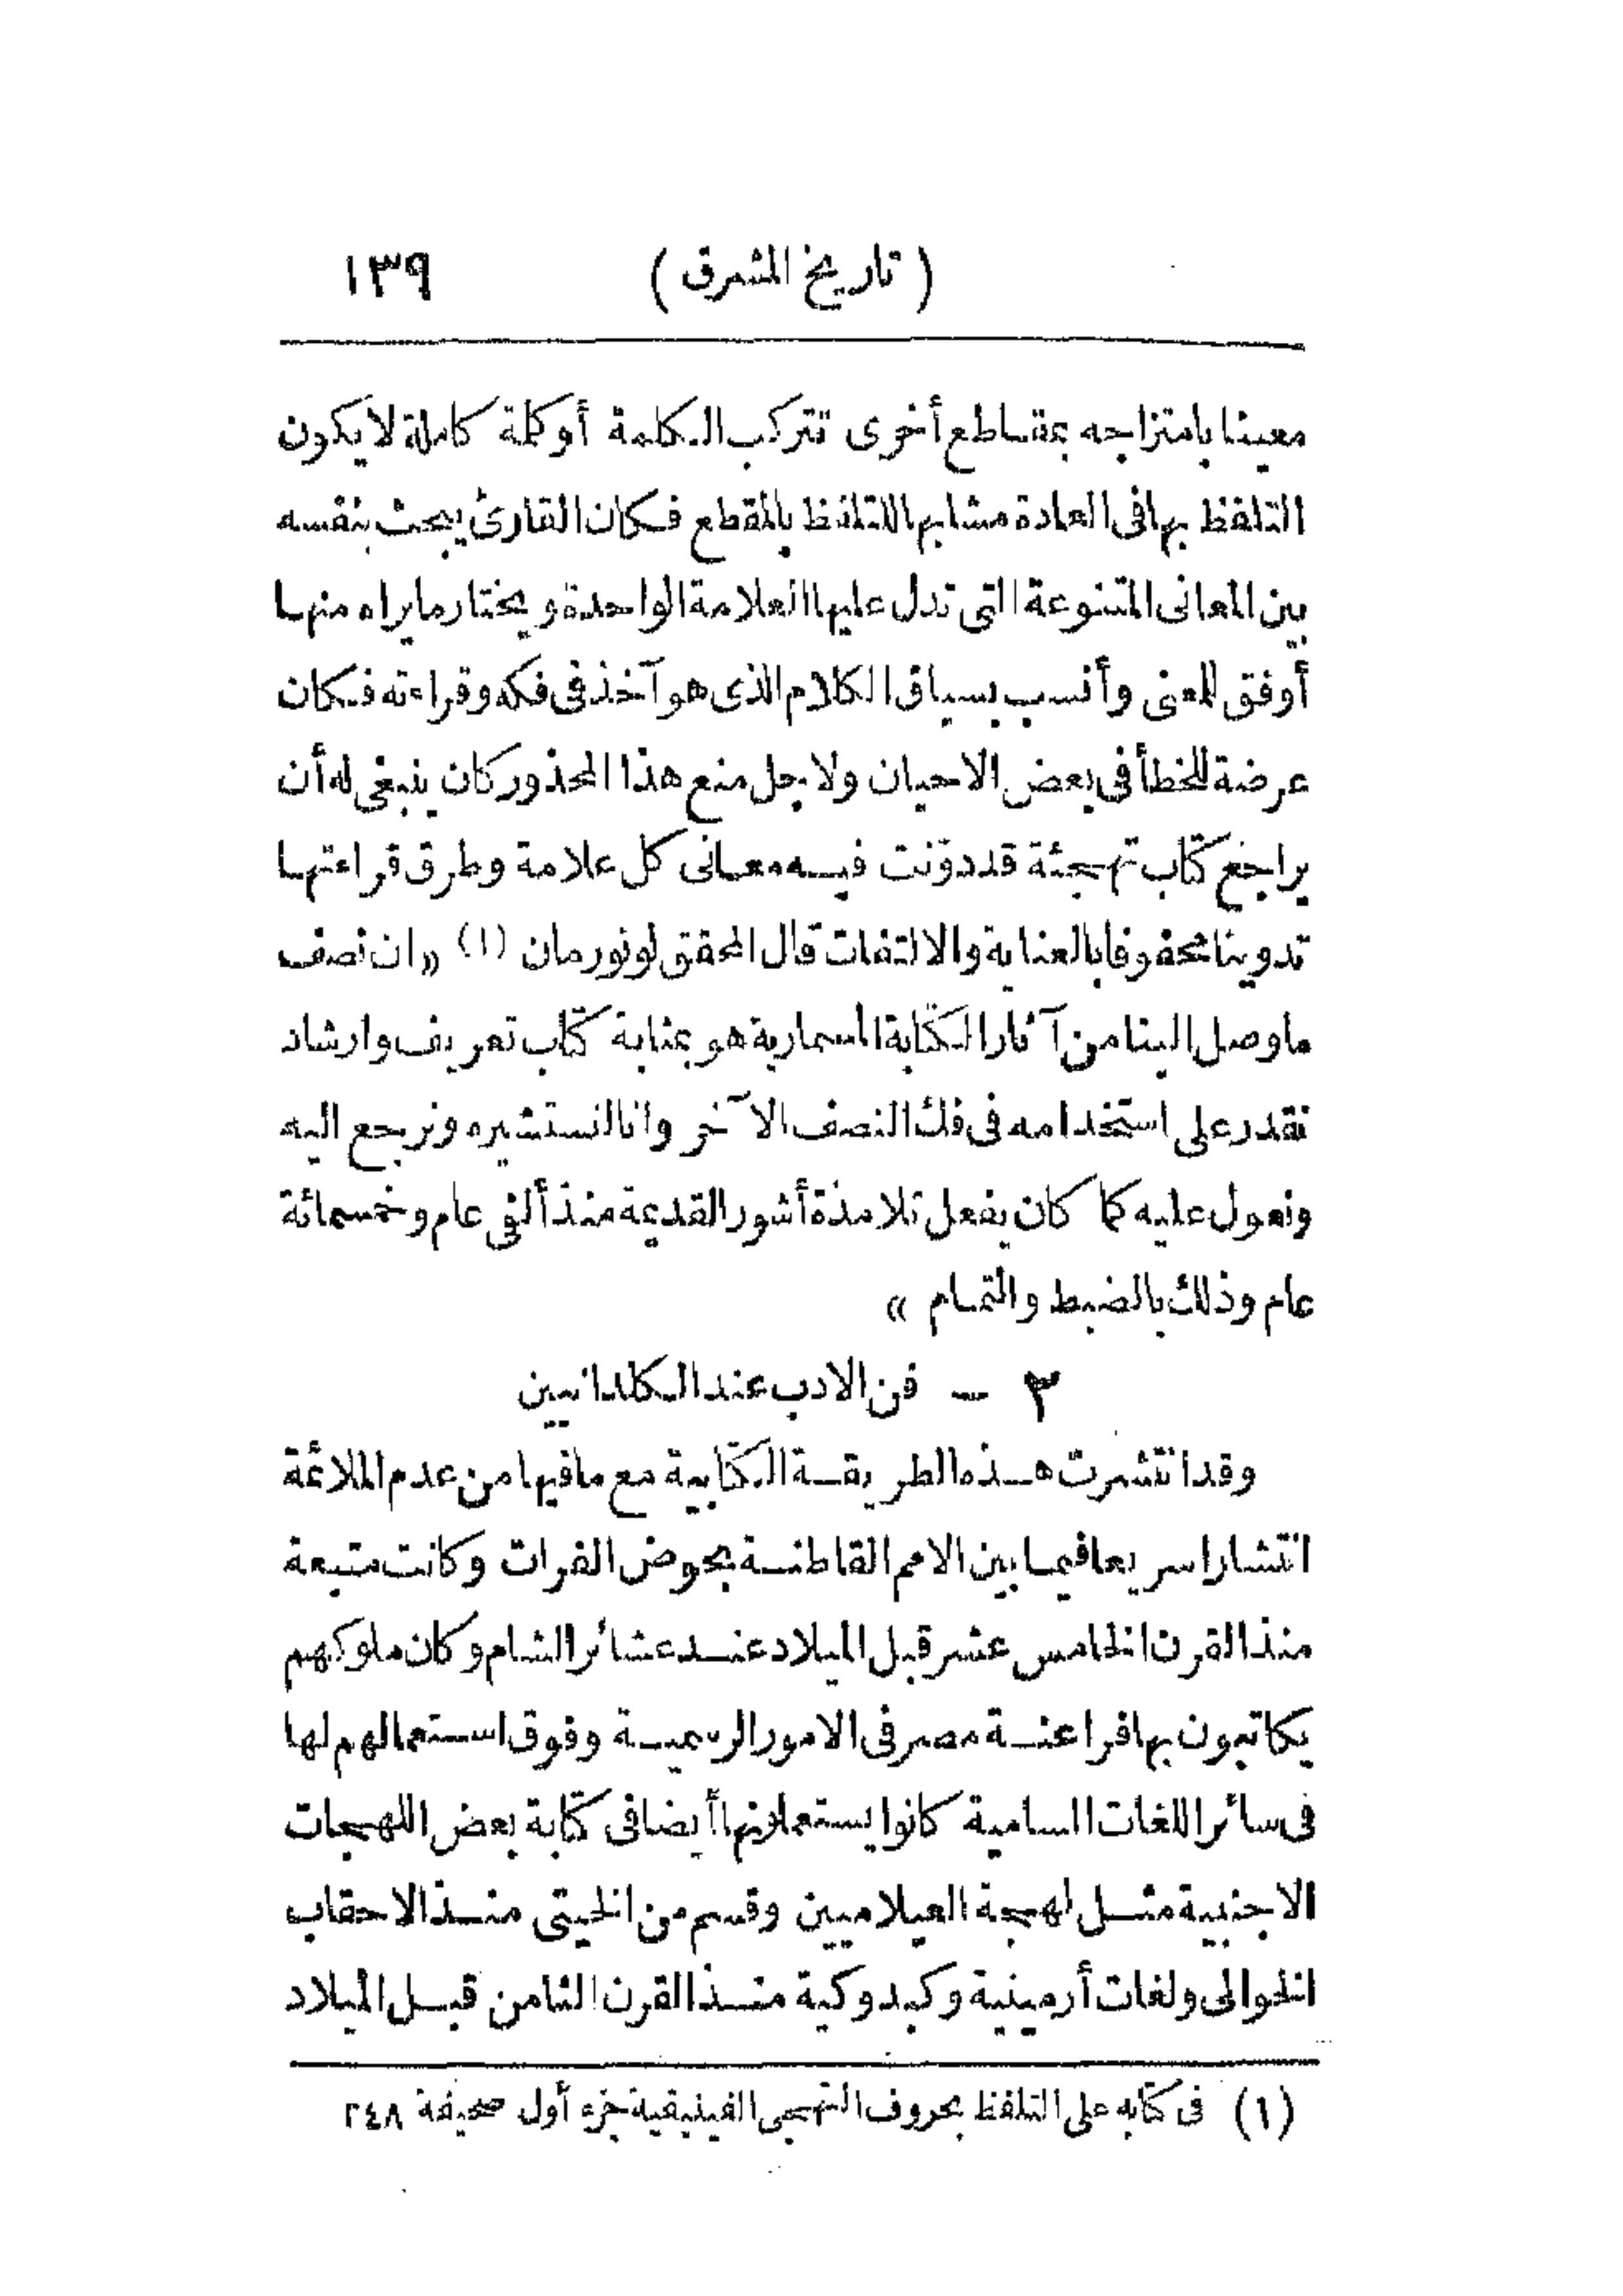 ( تاريخ المشرق ) ١٣٩
معينا بامتزاجه بمقاطع أخرى تتركب الكلمة أو كلمة كاملة لا يكون
التلفظ بها فى العادة مشابها للتلفظ بالمقطع فكان القارئ يبحث بنفسه
بين المعانى المتنوعة التى تدل عليها العلامة الواحدة ويختار ما يراه منها
أوفق للمعنى وأنسب بسياق الكلام الذى هو آخذ فى فكه وقراءته فكان
عرضة للخطأ فى بعض الاحيان ولاجل منع هذا المحذور كان ينبغى له أن
يراجع كتاب تهجئة قد دوّنت فيه معانى كل علامة وطرق قراءتها
تدوينا محفوفا بالعناية والالتفات قال المحقق لونورمان (١) «ان نصف
ما وصل الينا من آثار الكتابة المسمارية هو بمثابة كتاب تعريف وارشاد
نقدر على استخدامه فى فك النصف الآخر وانا لنستشيره ونرجع اليه
ونعول عليه كما كان يفعل تلامذة أشور القديمة منذ ألفى عام وخمسمائة
عام وذلك بالضبط والتمام »
٣ — فن الادب عند الكلدانيين
وقد انتشرت هذه الطريقة الكتابية مع ما فيها من عدم الملائمة
انتشارا سريعا فيما بين الامم القاطنة بحوض الفرات وكانت متبعة
منذ القرن الخامس عشر قبل الميلاد عند عشائر الشام وكان ملوكهم
يكاتبون بها فراعنة مصر فى الامور الرسمية وفوق استعمالهم لها
فى سائر اللغات السامية كانوا يستعملونها أيضا فى كتابة بعض اللهجات
الاجنبية مثل لهجة العيلاميين وقسم من الخيتى منذ الاحقاب
الخوالى ولغات أرمينية وكبدوكية منذ القرن الثامن قبل الميلاد
(١) فى كتابه على التلفظ بحروف التهجى الفينيقية جزء أول صحيفة ٢٤٨